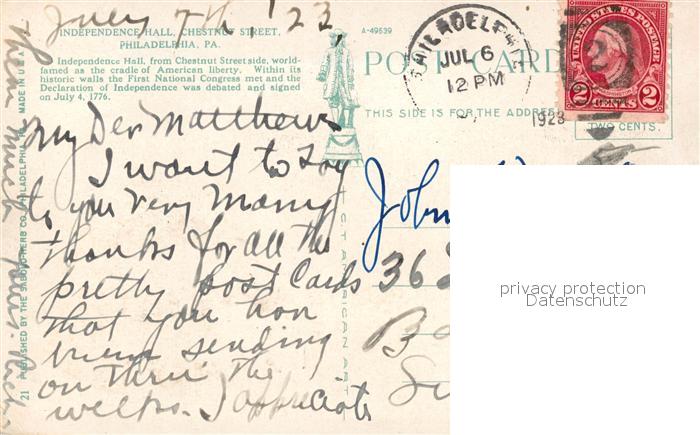 July 7th, '23,
INDEPENDENCE HALL, CHESTNUT STREET,
PHILADELPHIA, PA.
Independence Hall, from Chestnut Street side, world-
famed as the cradle of American liberty. Within its
historic walls the First National Congress met and the
Declaration of Independence was debated and signed
on July 4, 1776.
My Der Matthews
I want to say
to you very many
thanks for all the
pretty post Cards
that you hon
been sending
on thru the
I appreciate
them much
21 PUBLISHED BY THE SABOLD-HERB CO., PHILADELPHIA, PA. MADE IN U.S.A.
A-49539
POST CARD
THIS SIDE IS FOR THE ADDRESS
PHILADELPH
JUL 6
12 PM
1923
UNITED STATES POSTAGE
2 CENTS 2
TWO CENTS.
John
368
AMERICAN ART
privacy protection
Datenschutz